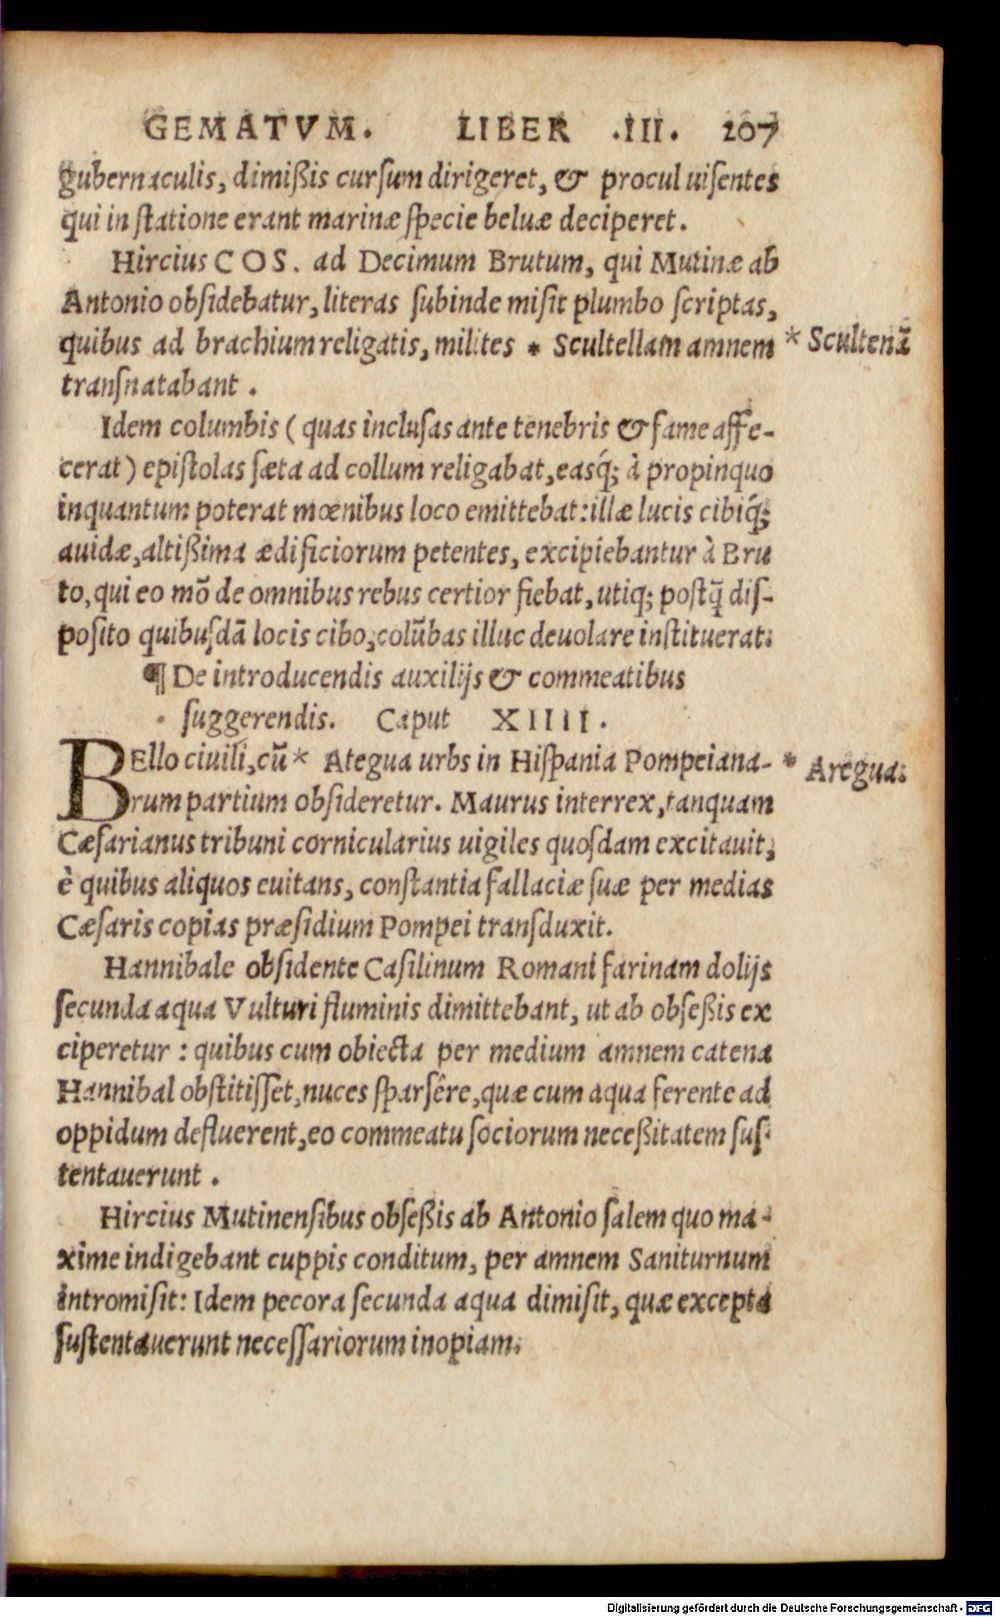 GEMATVM. LIBER .III. 207
gubernaculis, dimißis curſum dirigeret, & procul uiſentes
qui in ſtatione erant marinæ ſpecie beluæ deciperet.
Hircius COS. ad Decimum Brutum, qui Mutinæ ab
Antonio obſidebatur, literas ſubinde miſit plumbo ſcriptas,
quibus ad brachium religatis, milites * Scultellam amnem
* Scultenã
tranſnatabant.
Idem columbis (quas incluſas ante tenebris & fame affe-
cerat) epiſtolas ſæta ad collum religabat, easq́; à propinquo
inquantum poterat mœnibus loco emittebat: illæ lucis cibiq́;
auidæ, altißima ædificiorum petentes, excipiebantur à Bru
to, qui eo mõ de omnibus rebus certior fiebat, utiq; poſtq̃ diſ-
poſito quibuſdã locis cibo, colũbas illuc deuolare inſtituerat.
¶ De introducendis auxilijs & commeatibus
ſuggerendis. Caput XIIII.
BEllo ciuili, cũ * Ategua urbs in Hiſpania Pompeiana-
* Aregua.
rum partium obſideretur. Maurus interrex, tanquam
Cæſarianus tribuni cornicularius uigiles quoſdam excitauit,
è quibus aliquos euitans, conſtantia fallaciæ ſuæ per medias
Cæſaris copias præſidium Pompei tranſduxit.
Hannibale obſidente Caſilinum Romani farinam dolijs
ſecunda aqua Vulturi fluminis dimittebant, ut ab obſeßis ex
ciperetur: quibus cum obiecta per medium amnem catena
Hannibal obſtitiſſet, nuces ſparſêre, quæ cum aqua ferente ad
oppidum defluerent, eo commeatu ſociorum neceßitatem ſuſ-
tentauerunt.
Hircius Mutinenſibus obſeßis ab Antonio ſalem quo ma-
xime indigebant cuppis conditum, per amnem Saniturnum
intromiſit: Idem pecora ſecunda aqua dimiſit, quæ excepta
ſuſtentauerunt neceſſariorum inopiam.
Digitalisierung gefördert durch die Deutsche Forschungsgemeinschaft - DFG